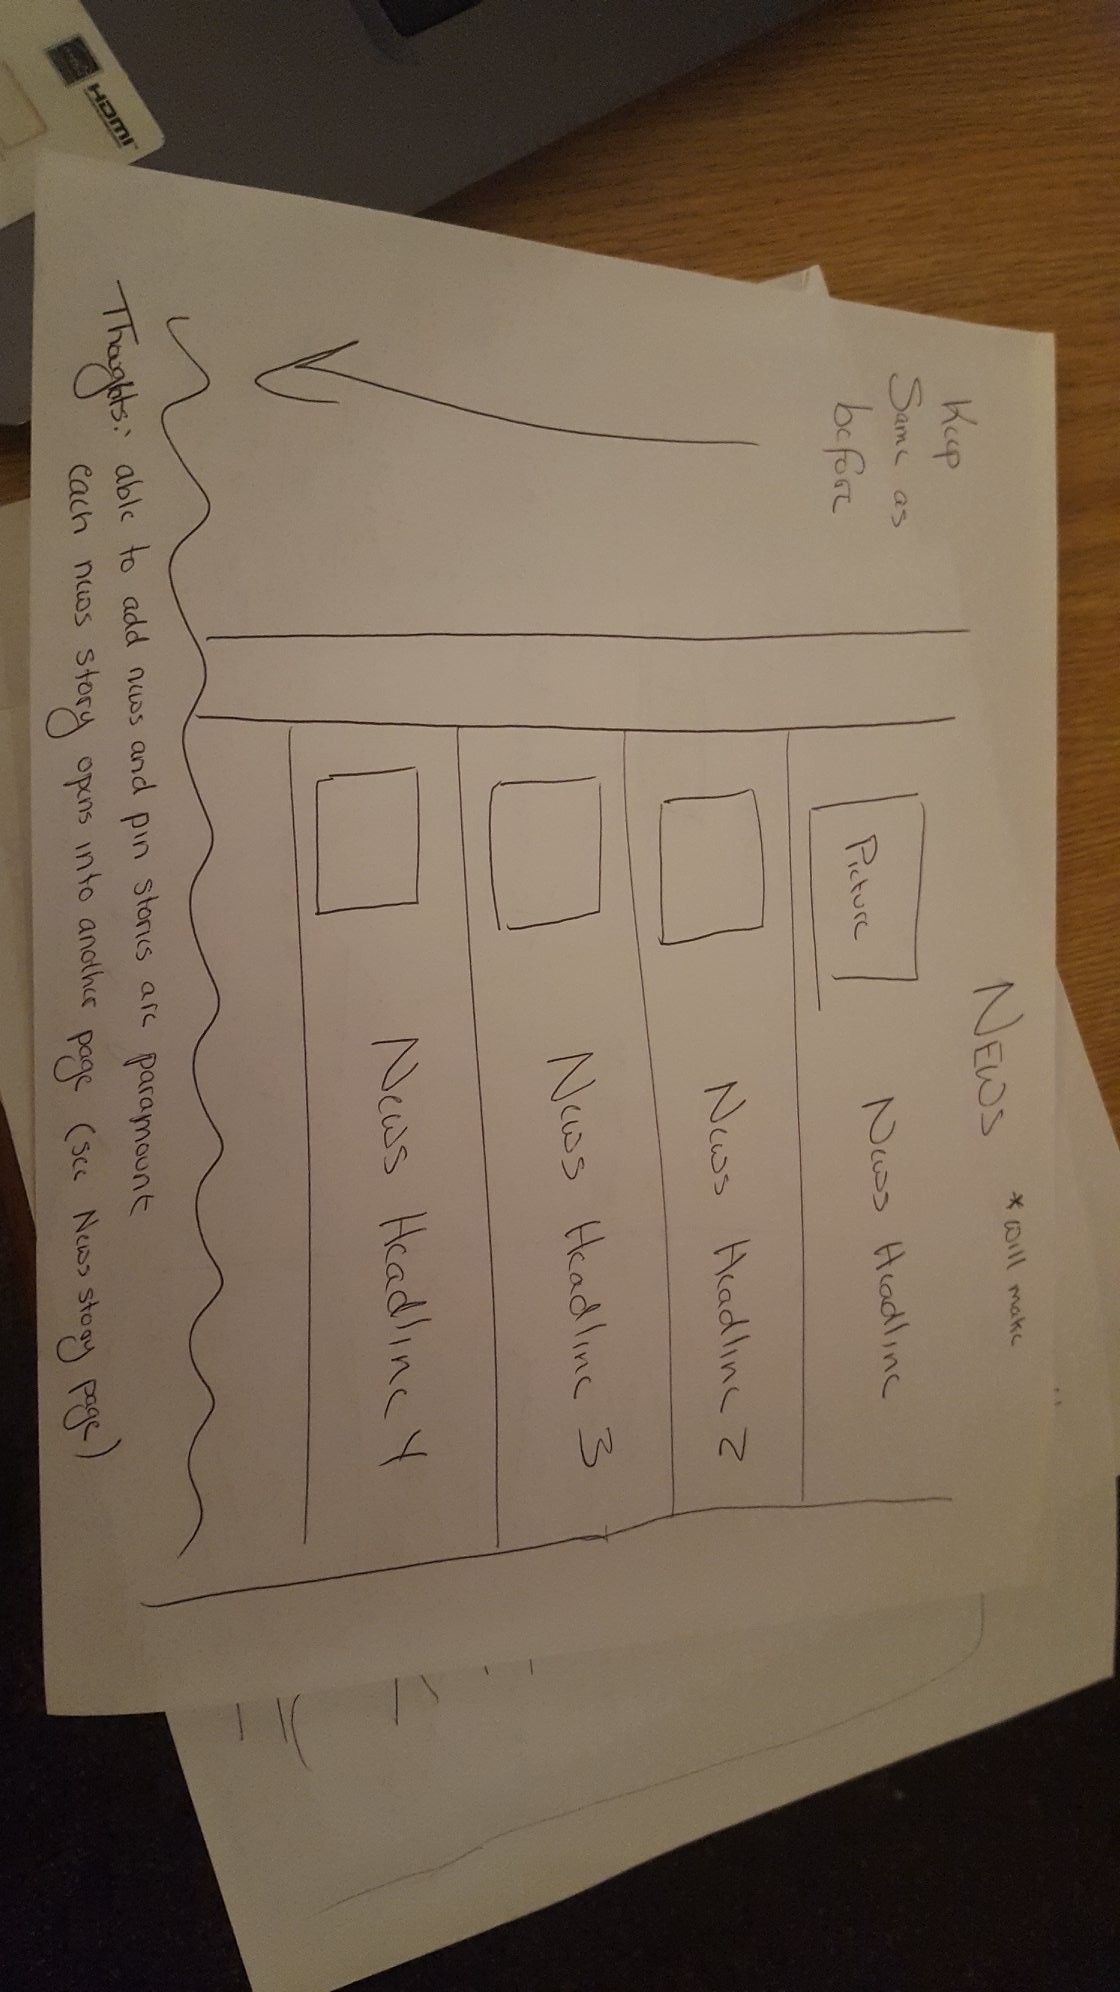 HDMI
NEWS
*will make
Keep
Same as
before
Picture
News Headline
News Headline 2
News Headline 3
News Headline 4
Thoughts: able to add news and pin stories are paramount
each news story opens into another page (see News stogy page)